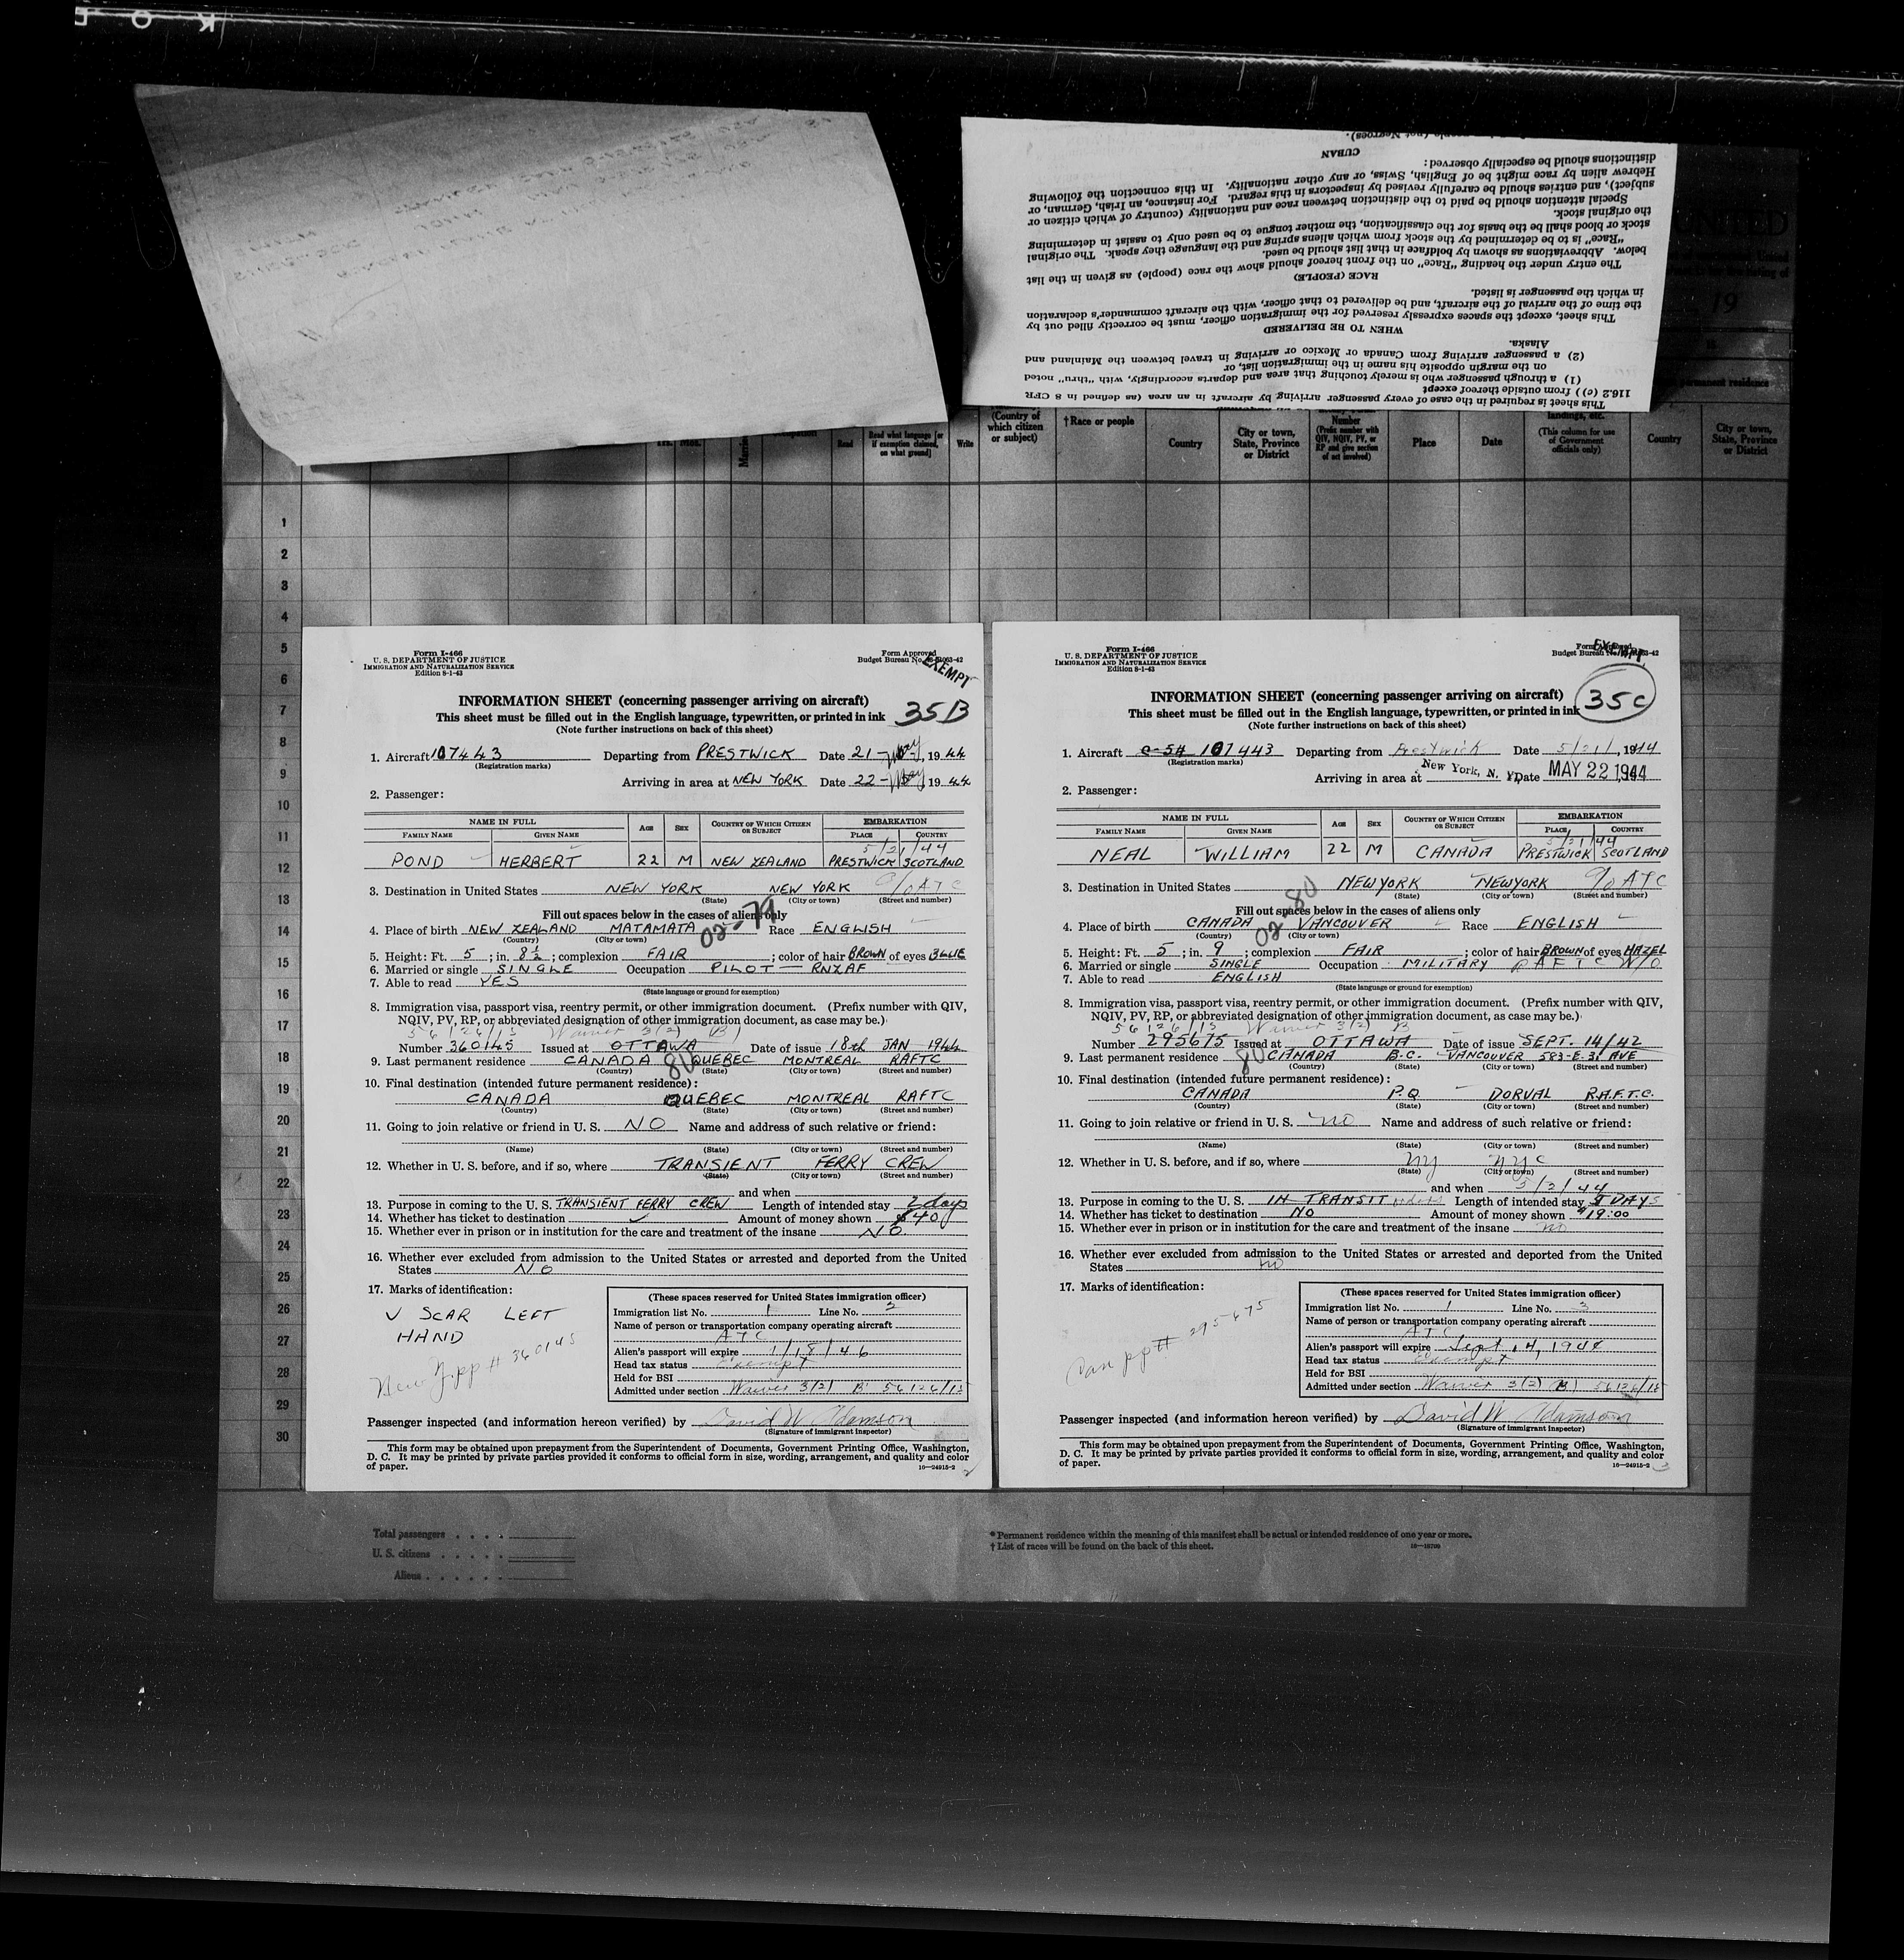 This sheet is required in the case of every passenger arriving by aircraft in an area (as defined in 8 CFR
116.2 (c)) from outside thereof except
(1) a through passenger who is merely touching that area and departs accordingly, with "thru" noted
on the margin opposite his name in the immigration list, or
(2) a passenger arriving from Canada or Mexico or arriving in travel between the Mainland and
Alaska.
WHEN TO BE DELIVERED
This sheet, except the spaces expressly reserved for the immigration officer, must be correctly filled out by
the time of the arrival of the aircraft, and be delivered to that officer, with the aircraft commander's declaration
in which the passenger is listed.
RACE (PEOPLE)
The entry under the heading "Race" on the front hereof should show the race (people) as given in the list
below. Abbreviations as shown by boldface in that list should be used.
"Race" is to be determined by the stock from which aliens spring and the language they speak. The original
stock or blood shall be the basis for the classification, the mother tongue to be used only to assist in determining
the original stock.
Special attention should be paid to the distinction between race and nationality (country of which citizen or
subject), and entries should be carefully revised by inspectors in this regard. For instance, an Irish, German, or
Hebrew alien by race might be of English, Swiss, or any other nationality. In this connection the following
distinctions should be especially observed:
CUBAN
(not Negroes).
19
permanent residence
Read
Read what language [or if exemption claimed, on what ground]
Write
(Country of which citizen or subject)
†Race or people
Country
City or town, State, Province or District
Number (Prefix number with QIV, NQIV, PV, or RP and give section of act involved)
Place
Date
landings, etc. (This column for use of Government officials only)
Country
City or town, State, Province or District
1
2
3
4
5
6
7
8
9
10
11
12
13
14
15
16
17
18
19
20
21
22
23
24
25
26
27
28
29
30
Form I-466
U. S. DEPARTMENT OF JUSTICE
IMMIGRATION AND NATURALIZATION SERVICE
Edition 8-1-43
Form Approved
Budget Bureau No.
EXEMPT
INFORMATION SHEET (concerning passenger arriving on aircraft)
This sheet must be filled out in the English language, typewritten, or printed in ink
35B
(Note further instructions on back of this sheet)
1. Aircraft 107443 Departing from PRESTWICK Date 21-May, 1944
(Registration marks)
Arriving in area at NEW YORK Date 22-May 1944
2. Passenger:
NAME IN FULL AGE SEX COUNTRY OF WHICH CITIZEN OR SUBJECT EMBARKATION
FAMILY NAME GIVEN NAME PLACE COUNTRY
5/21/44
POND HERBERT 22 M NEW ZEALAND PRESTWICK SCOTLAND
3. Destination in United States NEW YORK NEW YORK c/o ATC
(State) (City or town) (Street and number)
Fill out spaces below in the cases of aliens only
02-79
4. Place of birth NEW ZEALAND MATAMATA Race ENGLISH
(Country) (City or town)
5. Height: Ft. 5; in. 8½; complexion FAIR; color of hair BROWN of eyes BLUE
6. Married or single SINGLE Occupation PILOT — RNZAF
7. Able to read YES
(State language or ground for exemption)
8. Immigration visa, passport visa, reentry permit, or other immigration document. (Prefix number with QIV,
NQIV, PV, RP, or abbreviated designation of other immigration document, as case may be.)
56126/15 Waiver 3(2) (B)
Number 360145 Issued at OTTAWA Date of issue 18th JAN 1944
9. Last permanent residence CANADA 80 QUEBEC MONTREAL RAFTC
(Country) (State) (City or town) (Street and number)
10. Final destination (intended future permanent residence):
CANADA QUEBEC MONTREAL RAFTC
(Country) (State) (City or town) (Street and number)
11. Going to join relative or friend in U. S. NO Name and address of such relative or friend:
(Name) (State) (City or town) (Street and number)
12. Whether in U. S. before, and if so, where TRANSIENT FERRY CREW
(State) (City or town) (Street and number)
and when
13. Purpose in coming to the U. S. TRANSIENT FERRY CREW Length of intended stay 2 days
14. Whether has ticket to destination ✓ Amount of money shown $40
15. Whether ever in prison or in institution for the care and treatment of the insane NO
16. Whether ever excluded from admission to the United States or arrested and deported from the United
States NO
17. Marks of identification:
V SCAR LEFT
HAND
New Z. pp # 360145
(These spaces reserved for United States immigration officer)
Immigration list No. 1 Line No. 2
Name of person or transportation company operating aircraft
ATC
Alien's passport will expire 1/18/46
Head tax status Exempt
Held for BSI
Admitted under section Waiver 3(2) B 56126/15
Passenger inspected (and information hereon verified) by David W Adamson
(Signature of immigrant inspector)
This form may be obtained upon prepayment from the Superintendent of Documents, Government Printing Office, Washington,
D. C. It may be printed by private parties provided it conforms to official form in size, wording, arrangement, and quality and color
of paper.
16—24915-2
2
Form I-466
U. S. DEPARTMENT OF JUSTICE
IMMIGRATION AND NATURALIZATION SERVICE
Edition 8-1-43
Form Approved
Budget Bureau No.
EXEMPT
INFORMATION SHEET (concerning passenger arriving on aircraft)
This sheet must be filled out in the English language, typewritten, or printed in ink
35C
(Note further instructions on back of this sheet)
1. Aircraft C-54 107443 Departing from Prestwick Date 5/21/, 1944
(Registration marks)
Arriving in area at New York, N. Y. Date MAY 22 1944
2. Passenger:
NAME IN FULL AGE SEX COUNTRY OF WHICH CITIZEN OR SUBJECT EMBARKATION
FAMILY NAME GIVEN NAME PLACE COUNTRY
5/21/44
NEAL WILLIAM 22 M CANADA PRESTWICK SCOTLAND
3. Destination in United States NEWYORK NEWYORK c/o ATC
(State) (City or town) (Street and number)
Fill out spaces below in the cases of aliens only
02-80
4. Place of birth CANADA VANCOUVER Race ENGLISH
(Country) (City or town)
5. Height: Ft. 5; in. 9; complexion FAIR; color of hair BROWN of eyes HAZEL
6. Married or single SINGLE Occupation MILITARY RAFTC W/O
7. Able to read ENGLISH
(State language or ground for exemption)
8. Immigration visa, passport visa, reentry permit, or other immigration document. (Prefix number with QIV,
NQIV, PV, RP, or abbreviated designation of other immigration document, as case may be.)
56126/15 Waiver 3(2) B
Number 295675 Issued at OTTAWA Date of issue SEPT. 14/42
9. Last permanent residence 80 CANADA B.C. VANCOUVER 583-E. 31 AVE
(Country) (State) (City or town) (Street and number)
10. Final destination (intended future permanent residence):
CANADA P.Q DORVAL R.A.F.T.C.
(Country) (State) (City or town) (Street and number)
11. Going to join relative or friend in U. S. no Name and address of such relative or friend:
(Name) (State) (City or town) (Street and number)
12. Whether in U. S. before, and if so, where NY NYC
(State) (City or town) (Street and number)
and when 5/3/44
13. Purpose in coming to the U. S. IN TRANSIT Length of intended stay DAYS
14. Whether has ticket to destination NO Amount of money shown $19.00
15. Whether ever in prison or in institution for the care and treatment of the insane no
16. Whether ever excluded from admission to the United States or arrested and deported from the United
States no
17. Marks of identification:
Can pp # 295675
(These spaces reserved for United States immigration officer)
Immigration list No. 1 Line No. 3
Name of person or transportation company operating aircraft
ATC
Alien's passport will expire Sept 14, 1944
Head tax status Exempt
Held for BSI
Admitted under section Waiver 3(2) (B) 56126/15
Passenger inspected (and information hereon verified) by David W Adamson
(Signature of immigrant inspector)
This form may be obtained upon prepayment from the Superintendent of Documents, Government Printing Office, Washington,
D. C. It may be printed by private parties provided it conforms to official form in size, wording, arrangement, and quality and color
of paper.
16—24915-2
3
Total passengers
U. S. citizens
Aliens
* Permanent residence within the meaning of this manifest shall be actual or intended residence of one year or more.
† List of races will be found on the back of this sheet.